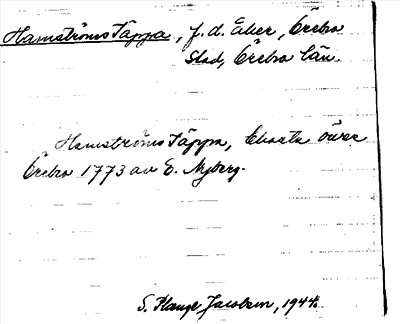 Hamströms Täppa, f.d. Eker, Örebro
Stad, Örebro län.
Hamströms Täppa, Charta över
Örebro 1773 av E. Nyberg.
S. Plauge Jacobson, 1944.